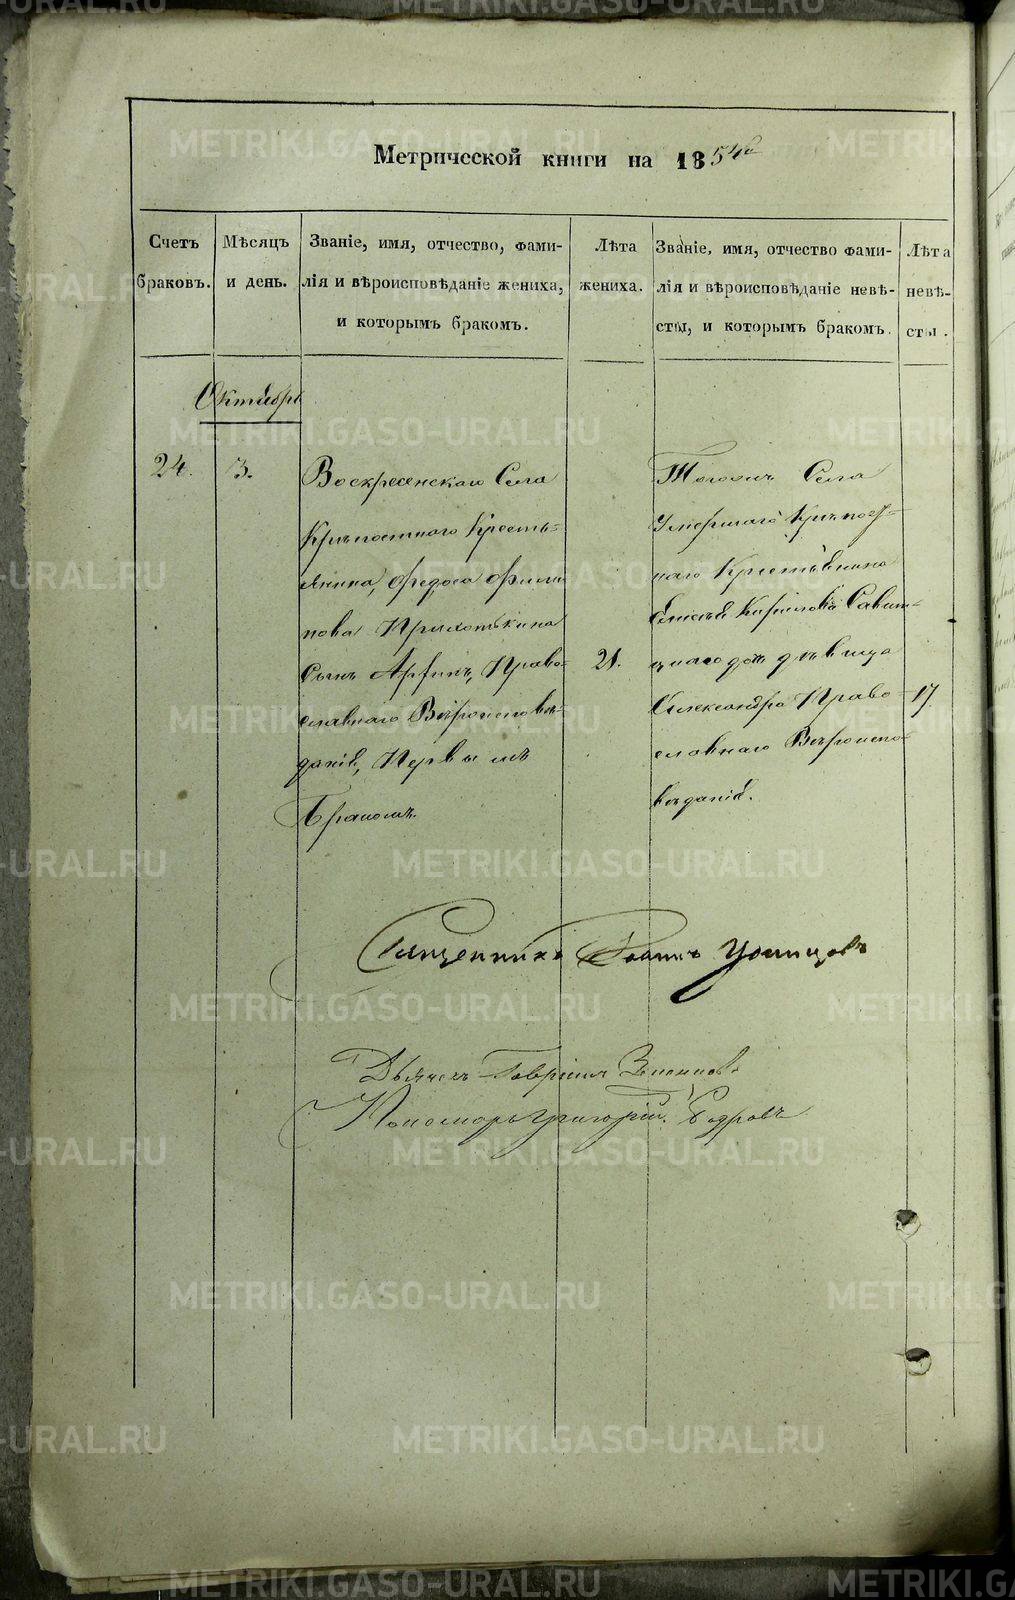 Метрической книги на 1854й
Счетъ браковъ.
Мѣсяцъ и день.
Званіе, имя, отчество, фами-
лія и вѣроисповѣданіе жениха,
и которымъ бракомъ.
Лѣта жениха.
Званіе, имя, отчество фами-
лія и вѣроисповѣданіе невѣ-
сты, и которымъ бракомъ.
Лѣта невѣ-
сты.
Октябрь
24.
3.
Воскресенскаго Села
Крѣпостнаго Кресть-
янина, Федоса Филип-
пова
Сынъ Право-
славнаго Вѣроисповѣ-
данія, Первымъ
Бракомъ.
21.
Тогожъ Села
Умершаго Крѣпост-
наго Крестьянина
Кирилова
дочь дѣвица
Александра Право-
славнаго Вѣроиспо-
вѣданія.
17
Священникъ Іоаннъ
Дьячекъ Гавріилъ
Пономарь Григорій
METRIKI.GASO-URAL.RU